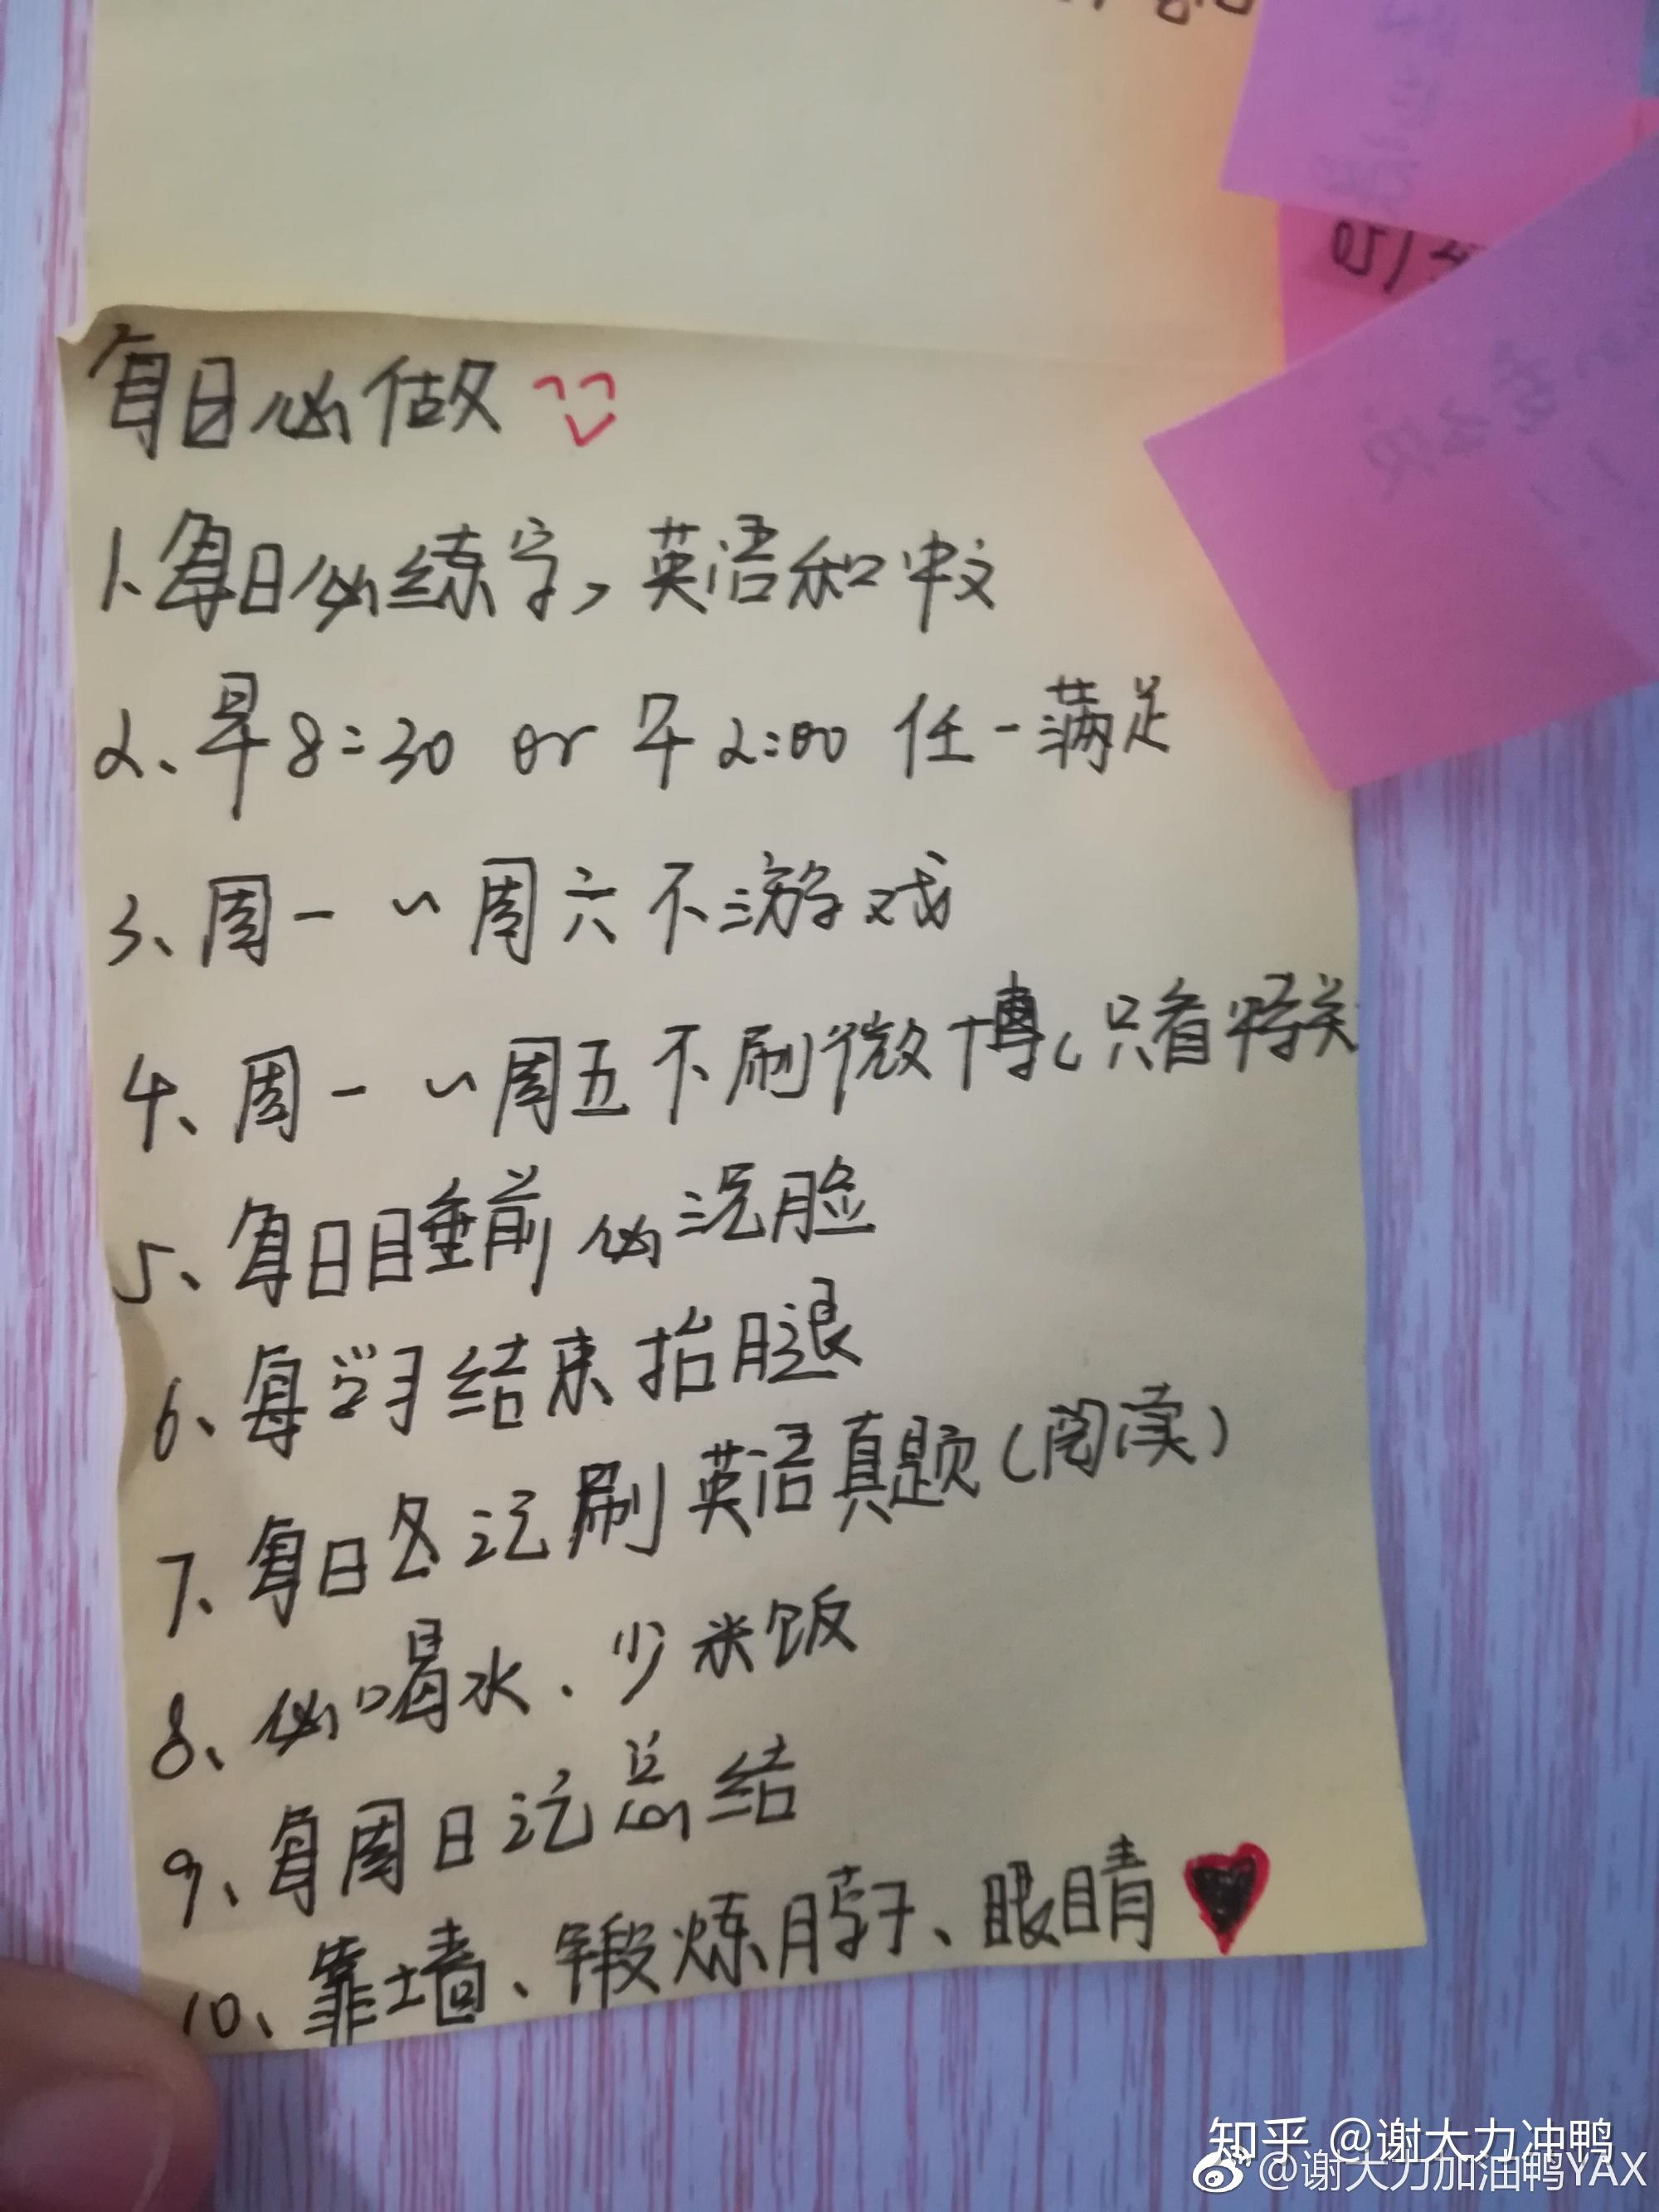 每日必做
1、每日必练字，英语和中文
2、早8:30 or 午2:00 任一满足
3、周一~周六不游戏
4、周一~周五不刷微博，只看特关
5、每日睡前必洗脸
6、每学习结束抬腿
7、每日各记刷英语真题(阅读)
8、必喝水、少米饭
9、每周日记总结
10、靠墙、锻炼脖子、眼睛
知乎 @谢大力冲鸭
@谢大力加油鸭YAX